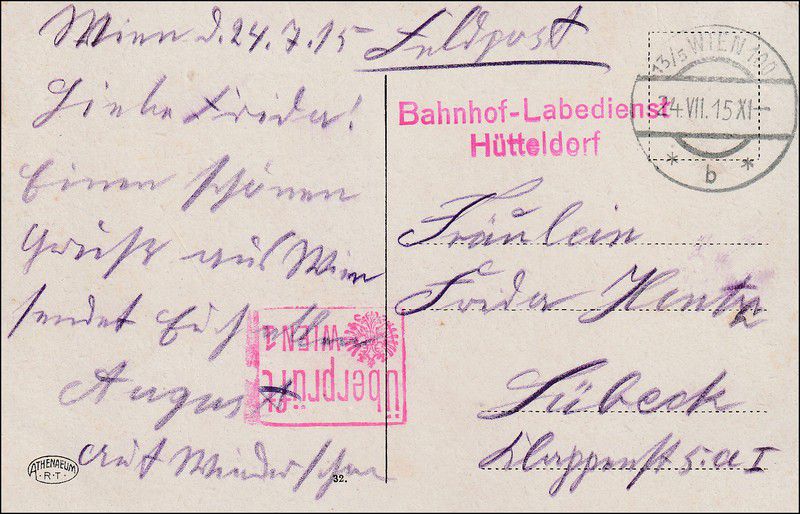 Wien d. 24.7.15
Feldpost
Liebe Frida!
Einen schönen
Gruß aus Wien
sendet Euch allen
August
Auf Wiedersehen
Bahnhof-Labedienst
Hütteldorf
13/5 WIEN 100
24.VII.15 XI
* b *
Fräulein
Frida
Lübeck
5. a I
Überprüft
WIEN 1
ATHENAEUM
R.T.
32.